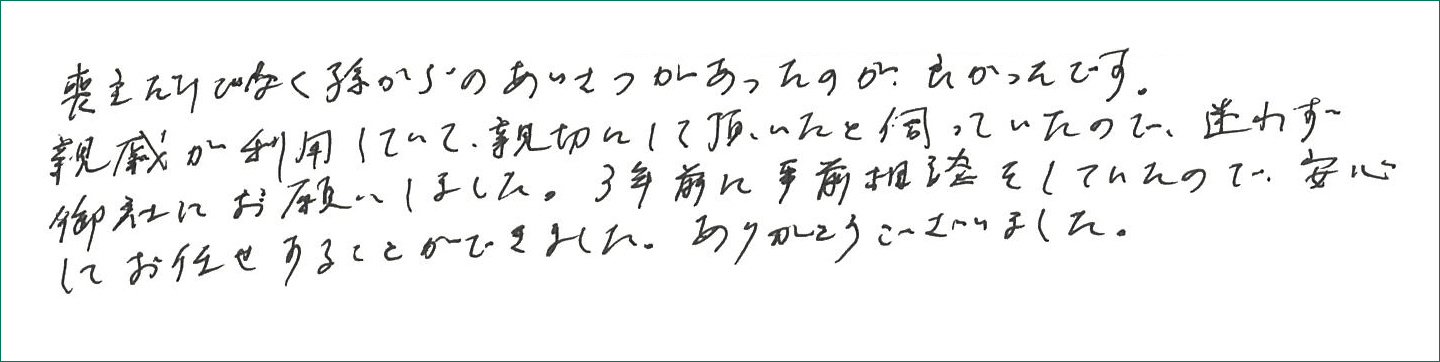 喪主だけでなく孫からのあいさつがあったのが、良かったです。
親戚が利用していて、親切にして頂いたと伺っていたので、迷わず
御社にお願いしました。3年前に事前相談をしていたので、安心
してお任せすることができました。ありがとうございました。